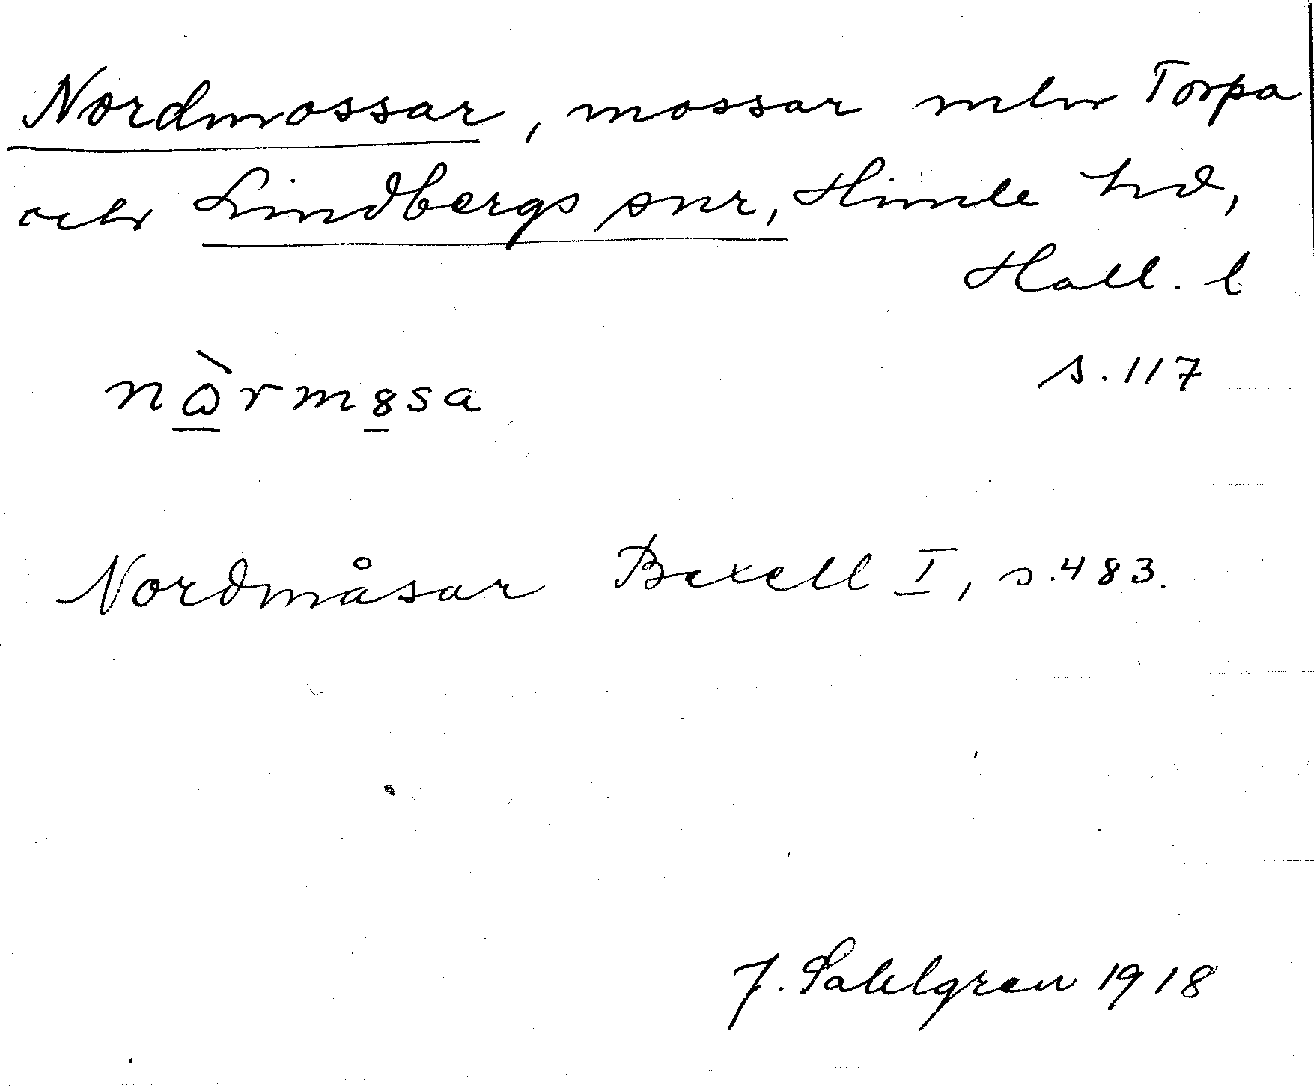 Nordmossar, mossar mln Torpa
och Lindbergs snr, Himle hd,
Hall. l
s. 117
nὼrm8sa
Nordmåsar Bexell I, s. 483.
J. Sahlgren 1918